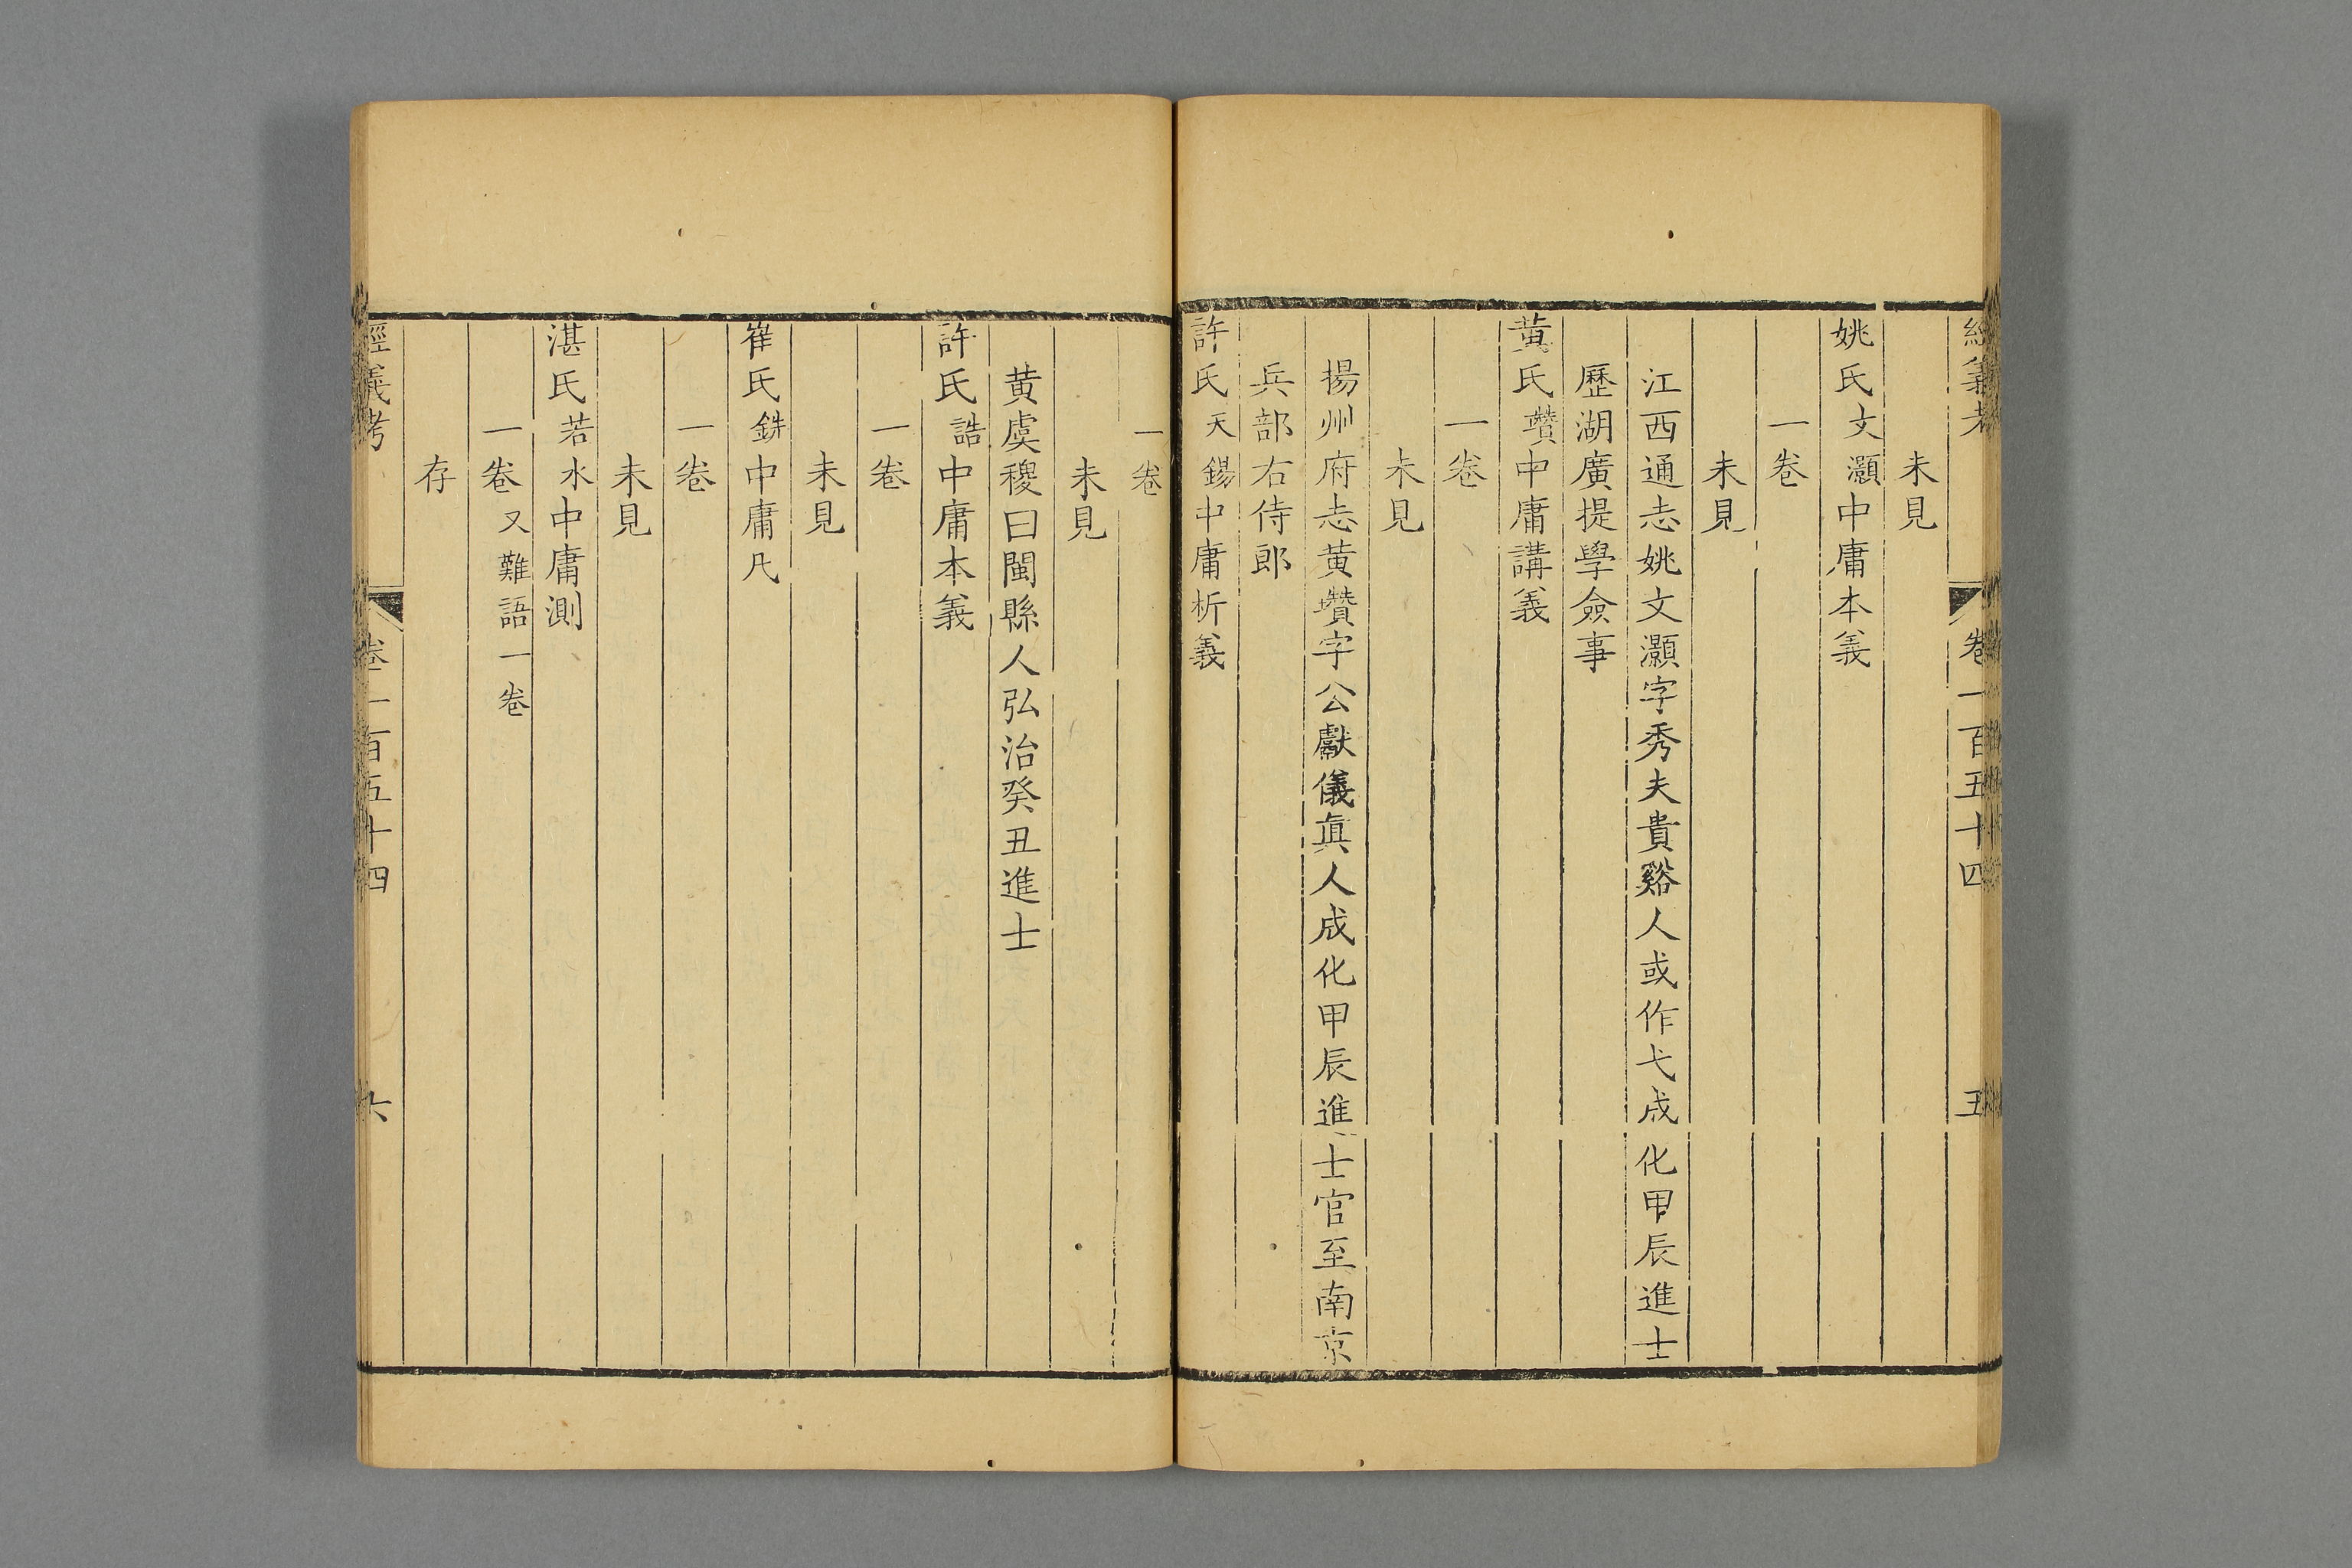 經義考 卷一百五十四 五
未見
姚氏文灝中庸本義
一卷
未見
江西通志姚文灝字秀夫貴谿人或作弋成化甲辰進士
歷湖廣提學僉事
黃氏瓚中庸講義
一卷
未見
揚州府志黃瓚字公獻儀眞人成化甲辰進士官至南京
兵部右侍郎
許氏天錫中庸析義
一卷
未見
黃虞稷曰閩縣人弘治癸丑進士
許氏誥中庸本義
一卷
未見
崔氏銑中庸凡
一卷
未見
湛氏若水中庸測
一卷又難語一卷
存
經義考 卷一百五十四 六